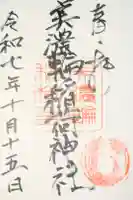 奉拝
美濃輪稲荷神社
令和七年十月十五日